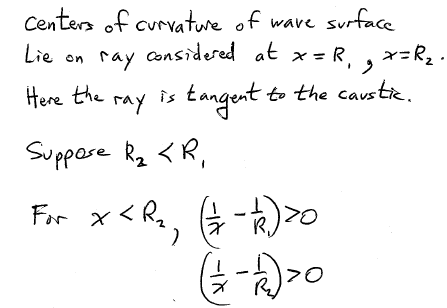 Centers of curvature of wave surface
Lie on ray considered at x = R₁, x = R₂.
Here the ray is tangent to the caustic.
Suppose R₂ < R₁
For x < R₂, (1/x - 1/R₁) > 0
(1/x - 1/R₂) > 0